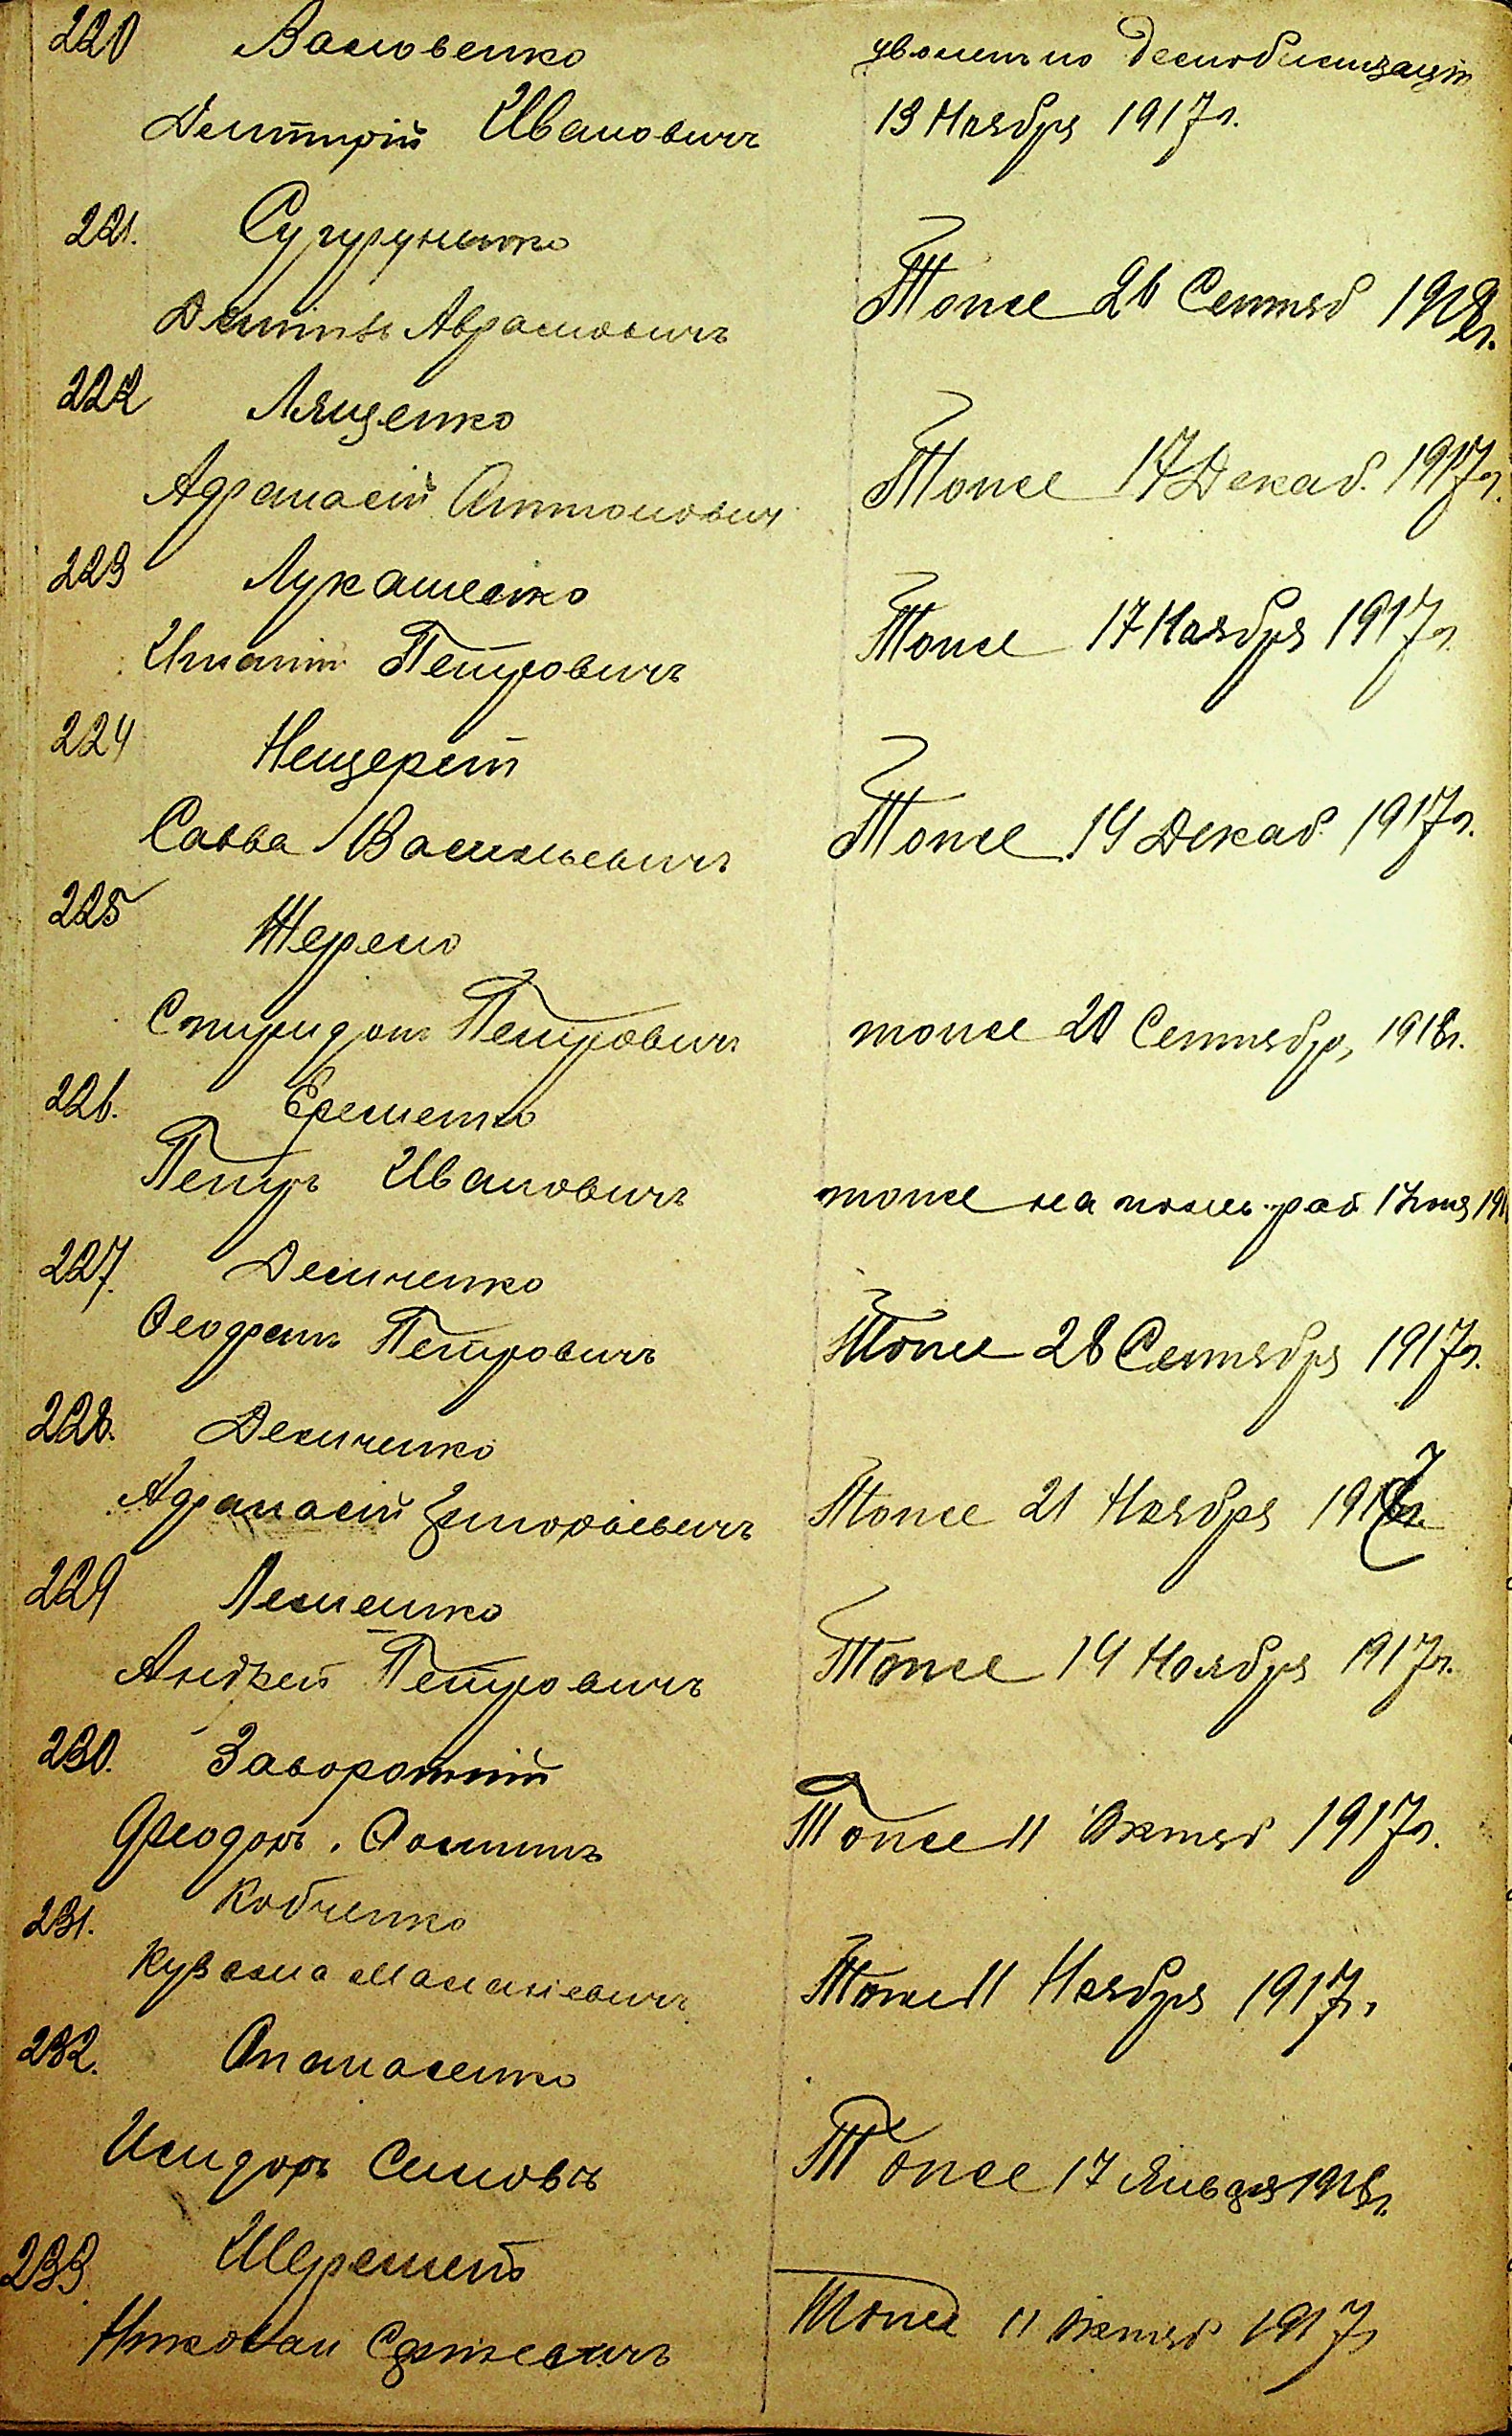 220 Васловенко уволенъ по демобилизаціи
Дмитрій Ивановичъ 13 Ноября 1917г.
221.
Аврамовичъ Тоже 26 Сентяб 1918г.
222 Лященко
Афанасій Антонович Тоже 17 Декаб. 1917г.
223 Лукашенко
Игнатій Петровичъ Тоже 17 Ноября 1917г.
224 Нещерет
Савва Васильевичъ Тоже 14 Декаб. 1917г.
225 Жерело
Спиридонъ Петровичъ тоже 20 Сентября, 1918г.
226. Еременко
Петръ Ивановичъ тоже на полев. раб
227. Демченко
Петровичъ Тоже 28 Сентября 1917г.
228. Демченко
Афанасій Григорьевичъ Тоже 21 Ноября 1917
229 Лемешко
Андрей Петровичъ Тоже 14 Ноября 1917г.
230. Заворотній
Феодоръ. Фоминъ Тоже 11 Октяб 1917г.
231. Кобченко
Кузьма Тоже 11 Ноября 1917г.
232. Опанасенко
Исидоръ Тоже 17 Января 1918г.
233 Шеремет
Николай Сергѣевичъ Тоже 11 Октяб 1917г